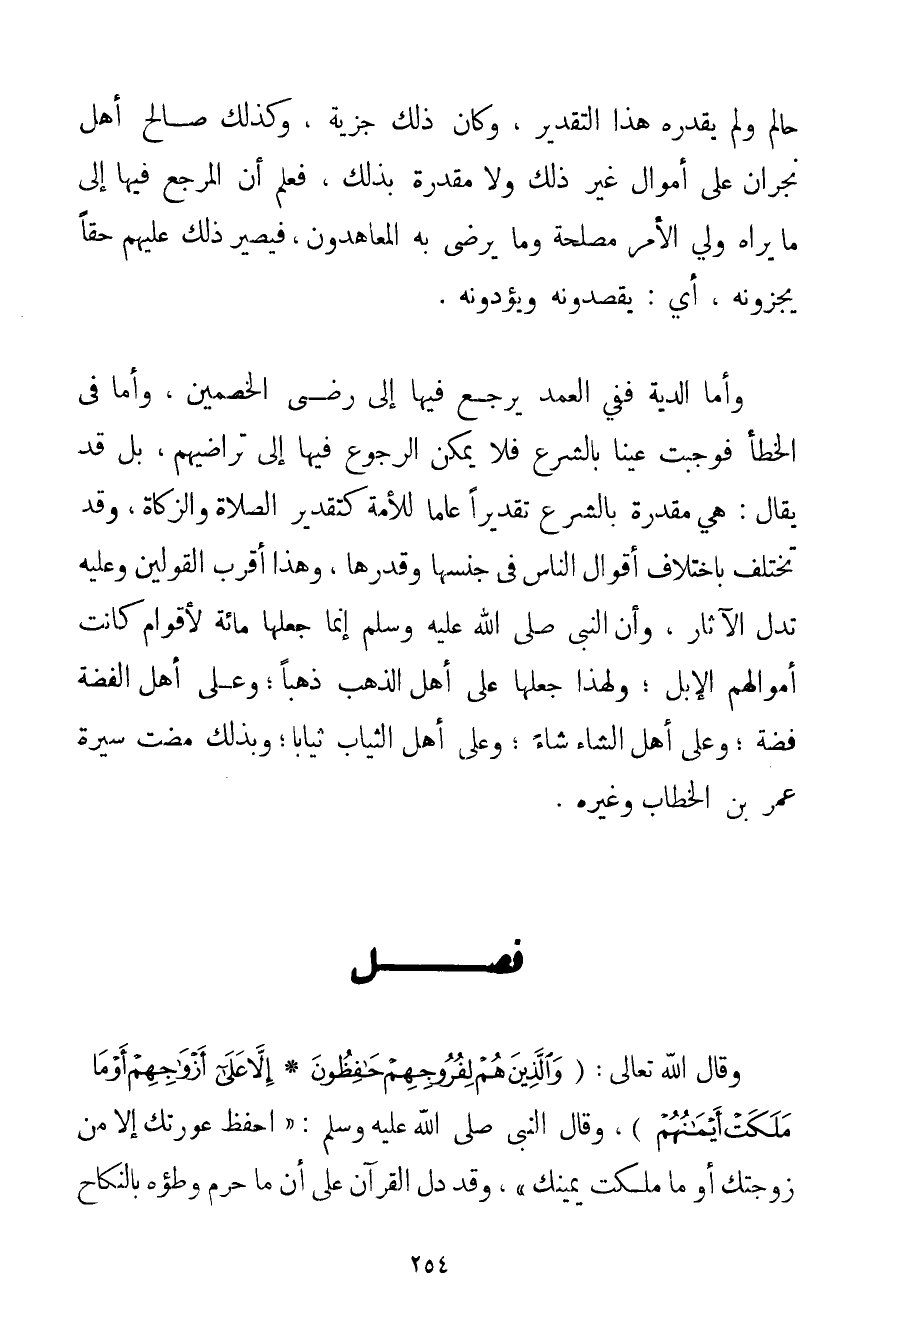 حالم ولم يقدره هذا التقدير ، وكان ذلك جزية ، وكذلك صالح أهل
نجران على أموال غير ذلك ولا مقدرة بذلك ، فعلم أن المرجع فيها إلى
ما يراه ولي الأمر مصلحة وما يرضى به المعاهدون ، فيصير ذلك عليهم حقاً
يجزونه ، أي : يقصدونه ويؤدونه .
وأما الدية ففي العمد يرجع فيها إلى رضى الخصمين ، وأما فى
الخطأ فوجبت عينا بالشرع فلا يمكن الرجوع فيها إلى تراضيهم ، بل قد
يقال : هي مقدرة بالشرع تقديراً عاما للأمة كتقدير الصلاة والزكاة ، وقد
تختلف باختلاف أقوال الناس فى جنسها وقدرها ، وهذا أقرب القولين وعليه
تدل الآثار ، وأن النبى صلى الله عليه وسلم إنما جعلها مائة لأقوام كانت
أموالهم الإبل ؛ ولهذا جعلها على أهل الذهب ذهباً ؛ وعلى أهل الفضة
فضة ؛ وعلى أهل الشاء شاءً ؛ وعلى أهل الثياب ثيابا ؛ وبذلك مضت سيرة
عمر بن الخطاب وغيره .
فصل
وقال الله تعالى : ( وَالَّذِينَ هُمْ لِفُرُوجِهِمْ حَافِظُونَ * إِلَّا عَلَىٰ أَزْوَاجِهِمْ أَوْ مَا
مَلَكَتْ أَيْمَانُهُمْ ) ، وقال النبى صلى الله عليه وسلم : « احفظ عورتك إلا من
زوجتك أو ما ملكت يمينك » ، وقد دل القرآن على أن ما حرم وطؤه بالنكاح
٢٥٤